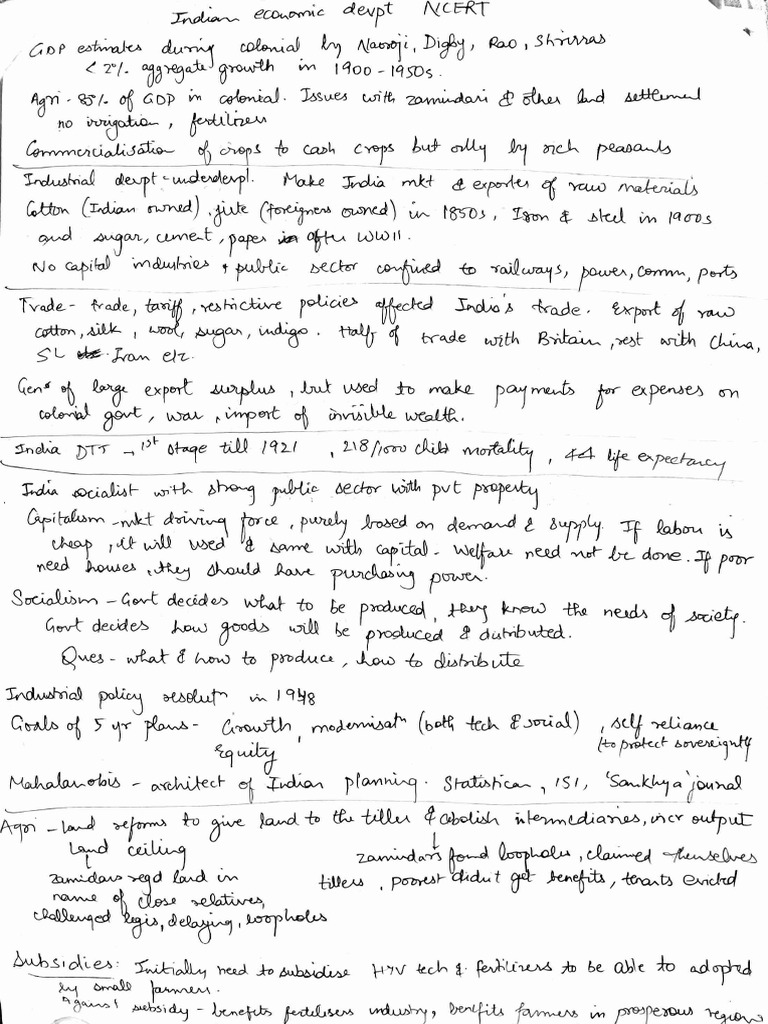 Indian economic devpt NCERT
GDP estimates during colonial by Naoroji, Digby, Rao, Shrinivas
< 2% aggregate growth in 1900-1950s.
Agri - 85% of GDP in colonial. Issues with zamindari & other land settlement
no irrigation, fertilizers
Commercialisation of crops to cash crops but only by rich peasants
Industrial devpt - underdevpl. Make India mkt & exporter of raw materials
Cotton (Indian owned), jute (foreigners owned) in 1850s, Iron & steel in 1900s
and sugar, cement, paper after WWII.
No capital industries & public sector confined to railways, power, comm, ports
Trade - trade, tariff, restrictive policies affected India's trade. Export of raw
cotton, silk, wool, sugar, indigo. Half of trade with Britain, rest with China,
SL Iran etc.
Genn of large export surplus, but used to make payments for expenses on
colonial govt, war, import of invisible wealth.
India DTT - 1st stage till 1921, 218/1000 child mortality, 44 life expectancy
India socialist with strong public sector with pvt property
Capitalism - mkt driving force, purely based on demand & supply. If labou is
cheap, it will used & same with capital - Welfare need not be done. If poor
need houses, they should have purchasing power.
Socialism - Govt decides what to be produced, they know the needs of society.
Govt decides how goods will be produced & distributed.
Ques - what & how to produce, how to distribute
Industrial policy resolutn in 1948
Goals of 5 yr plans - Growth, modernisatn (both tech & social), self reliance
Equity (to protect sovereignty)
Mahalanobis - architect of Indian planning. Statistican, ISI, 'Sankhya' journal
Agri - land reforms to give land to the tiller & abolish intermediaries, incr output
Land ceiling
zamindars found loopholes, claimed themselves
tillers, poorest didn't get benefits, tenants evicted
zamidars regd land in
name of close relatives,
challenged legis, delaying, loopholes
Subsidies: Initially need to subsidise HYV tech & fertilizers to be able to adopted
by small farmers.
Against subsidy - benefits fertilisers industry, benefits farmers in prosperous region